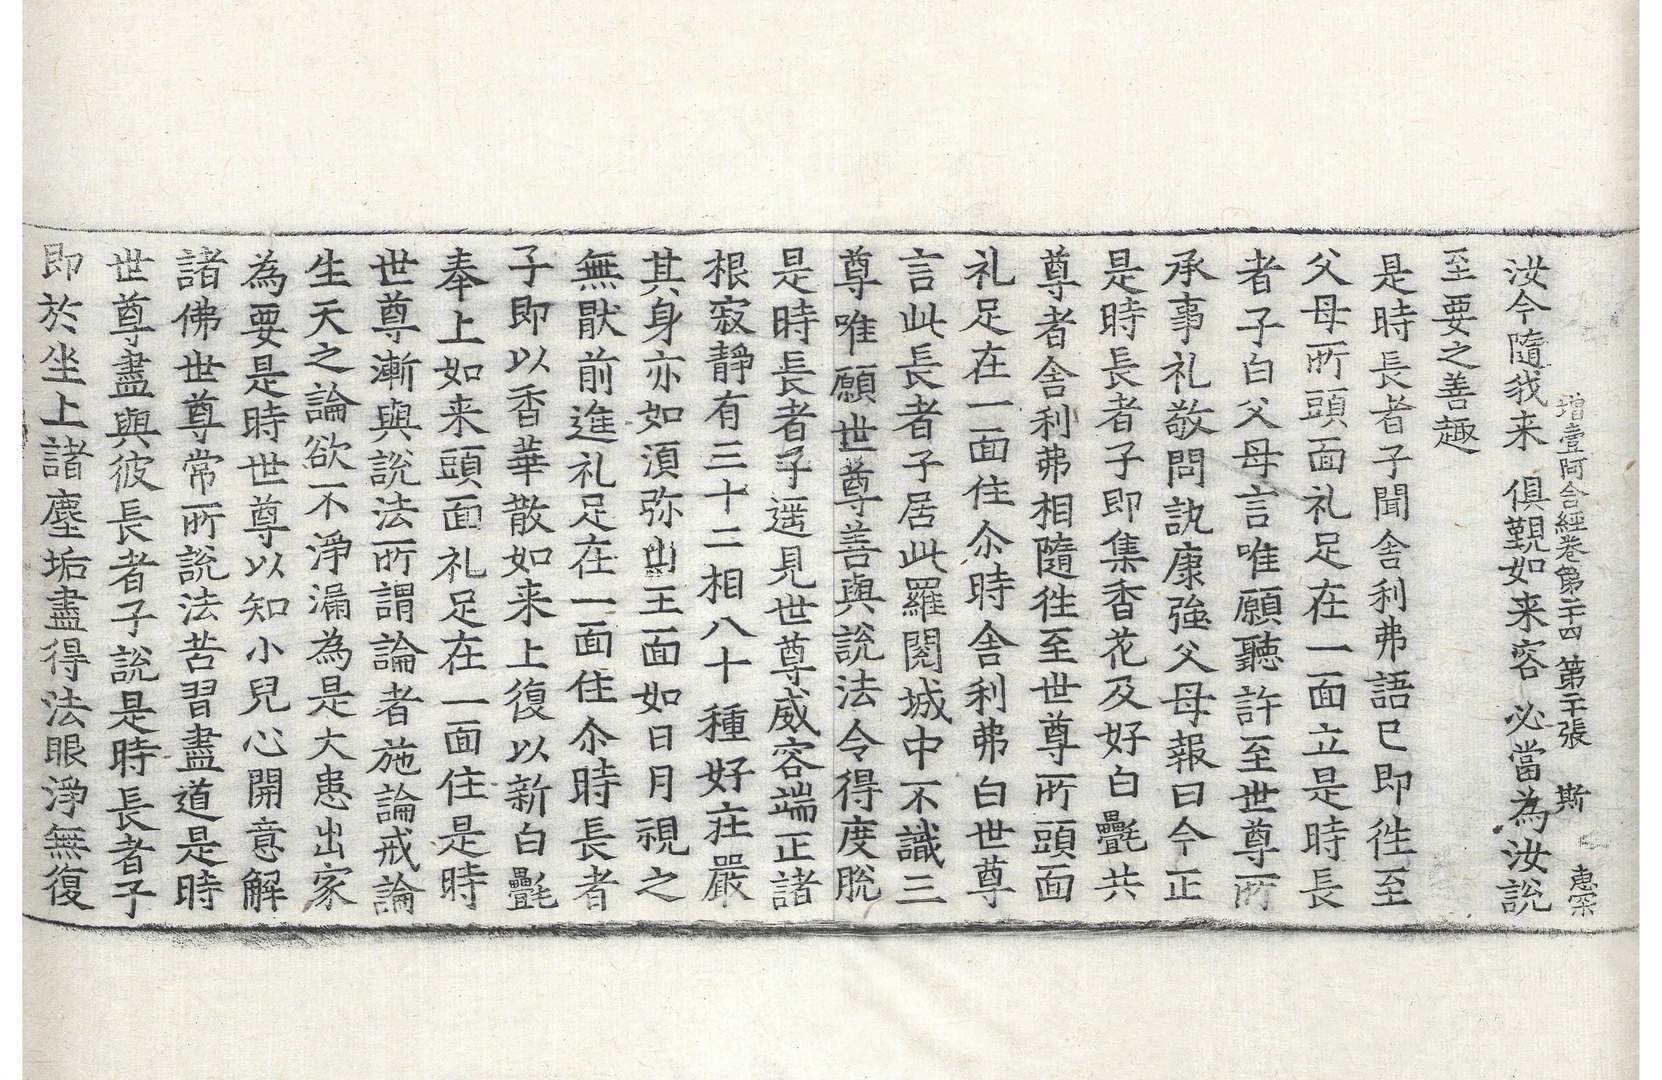 增壹阿含經卷第二十四 第二十張 斯 惠宗
汝今隨我来 俱覲如来容 必當為汝說
至要之善趣
是時長者子聞舍利弗語已即徃至
父母所頭面礼足在一面立是時長
者子白父母言唯願聽許至世尊所
承事礼敬問訊康強父母報曰今正
是時長者子即集香花及好白㲲共
尊者舍利弗相隨徃至世尊所頭面
礼足在一面住尒時舍利弗白世尊
言此長者子居此羅閱城中不識三
尊唯願世尊善與說法令得度脫
是時長者子遥見世尊威容端正諸
根寂靜有三十二相八十種好莊嚴
其身亦如須弥出王面如日月視之
無猒前進礼足在一面住尒時長者
子即以香華散如来上復以新白㲲
奉上如来頭面礼足在一面住是時
世尊漸與說法所謂論者施論戒論
生天之論欲不淨漏為是大患出家
為要是時世尊以知小兒心開意解
諸佛世尊常所說法苦習盡道是時
世尊盡與彼長者子說是時長者子
即於坐上諸塵垢盡得法眼淨無復